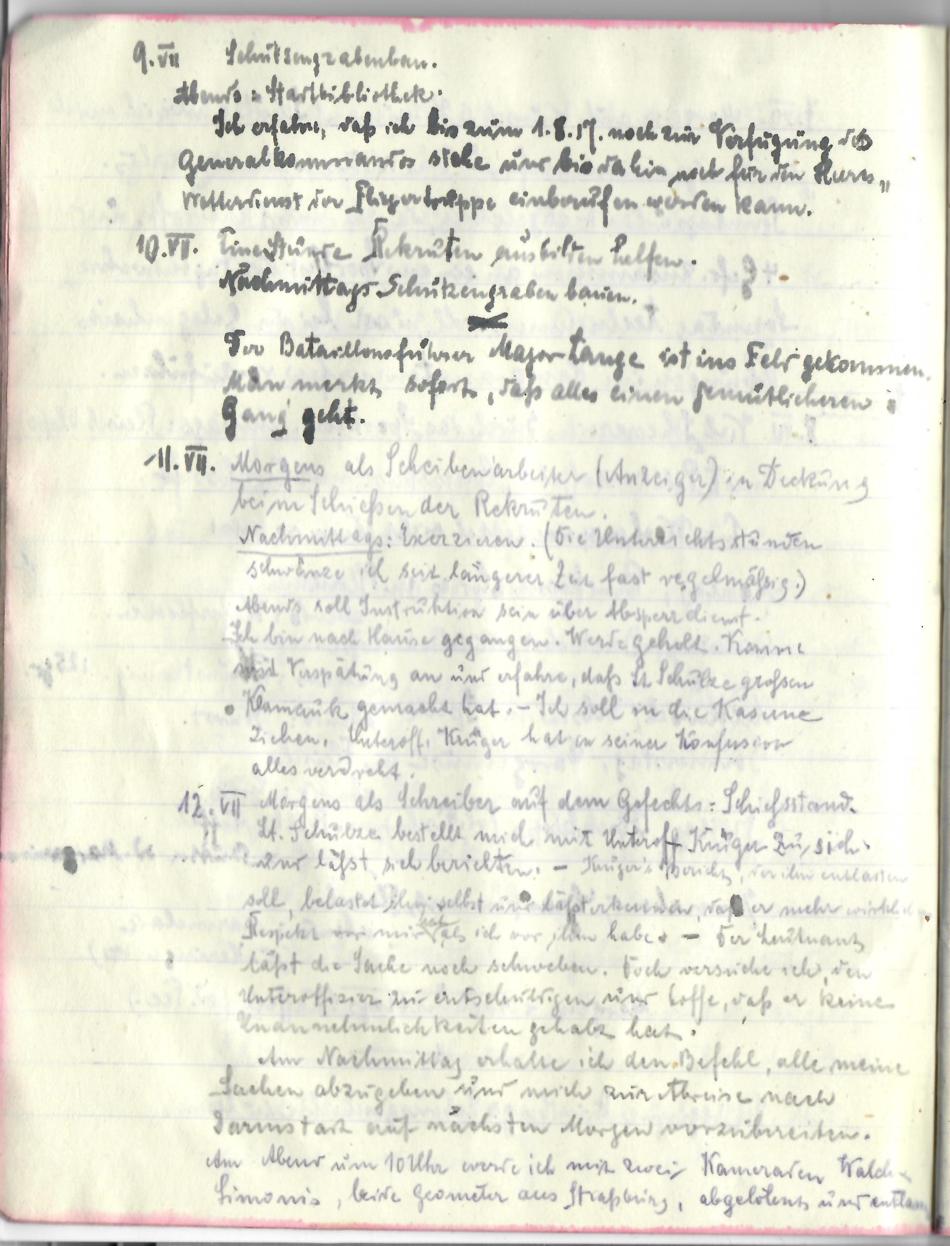 9.VII Schützengrabenbau.
Abends: Stadtbibliothek.
Ich erfahre, daß ich bis zum 1.8.17. noch zur Verfügung des
Generalkommandos stehe und bis dahin noch für den Heeres-
Wetterdienst der Fliegertruppe einberufen werden kann.
10.VII. Eine Stunde Rekruten ausbilden helfen.
Nachmittags Schützengraben bauen.
Der Bataillonsführer Major Lange ist ins Feld gekommen.
Man merkt sofort, daß alles einen gemütlicheren
Gang geht.
11.VII. Morgens als Scheibenarbeiter (Anzeiger) in Deckung
beim Schießen der Rekruten.
Nachmittags: Exerzieren. (Die Unterrichtsstunden
schwänze ich seit längerer Zeit fast regelmäßig.)
Abends soll Instruktion sein über Absperrdienst.
Ich bin nach Hause gegangen. Werde geholt. Komme
mit Verspätung an und erfahre, daß Lt Schulze großen
Klamauk gemacht hat. – Ich soll in die Kaserne
ziehen. Unteroff. Krüger hat in seiner Konfusion
alles verdreht.
12.VII Morgens als Schreiber auf dem Gefechts-Schießstand.
Lt. Schulze bestellt mich mit Unteroff Krüger zu sich
und läßt sich berichten. – Krügers Bericht, der ihn entlasten
soll, belastet ihn selbst und läßt erkennen, daß er mehr
Respekt vor mir hat als ich vor ihm habe. – Der Leutnant
läßt die Sache noch schweben. Doch versuche ich, den
Unteroffizier zu entschuldigen und hoffe, daß er keine
Unannehmlichkeiten gehabt hat.
Am Nachmittag erhalte ich den Befehl, alle meine
Sachen abzugeben und mich zur Abreise nach
Darmstadt auf nächsten Morgen vorzubereiten.
Am Abend um 10 Uhr werde ich mit zwei Kameraden
Simonis, beide Geometer aus Straßburg, abgelöhnt und